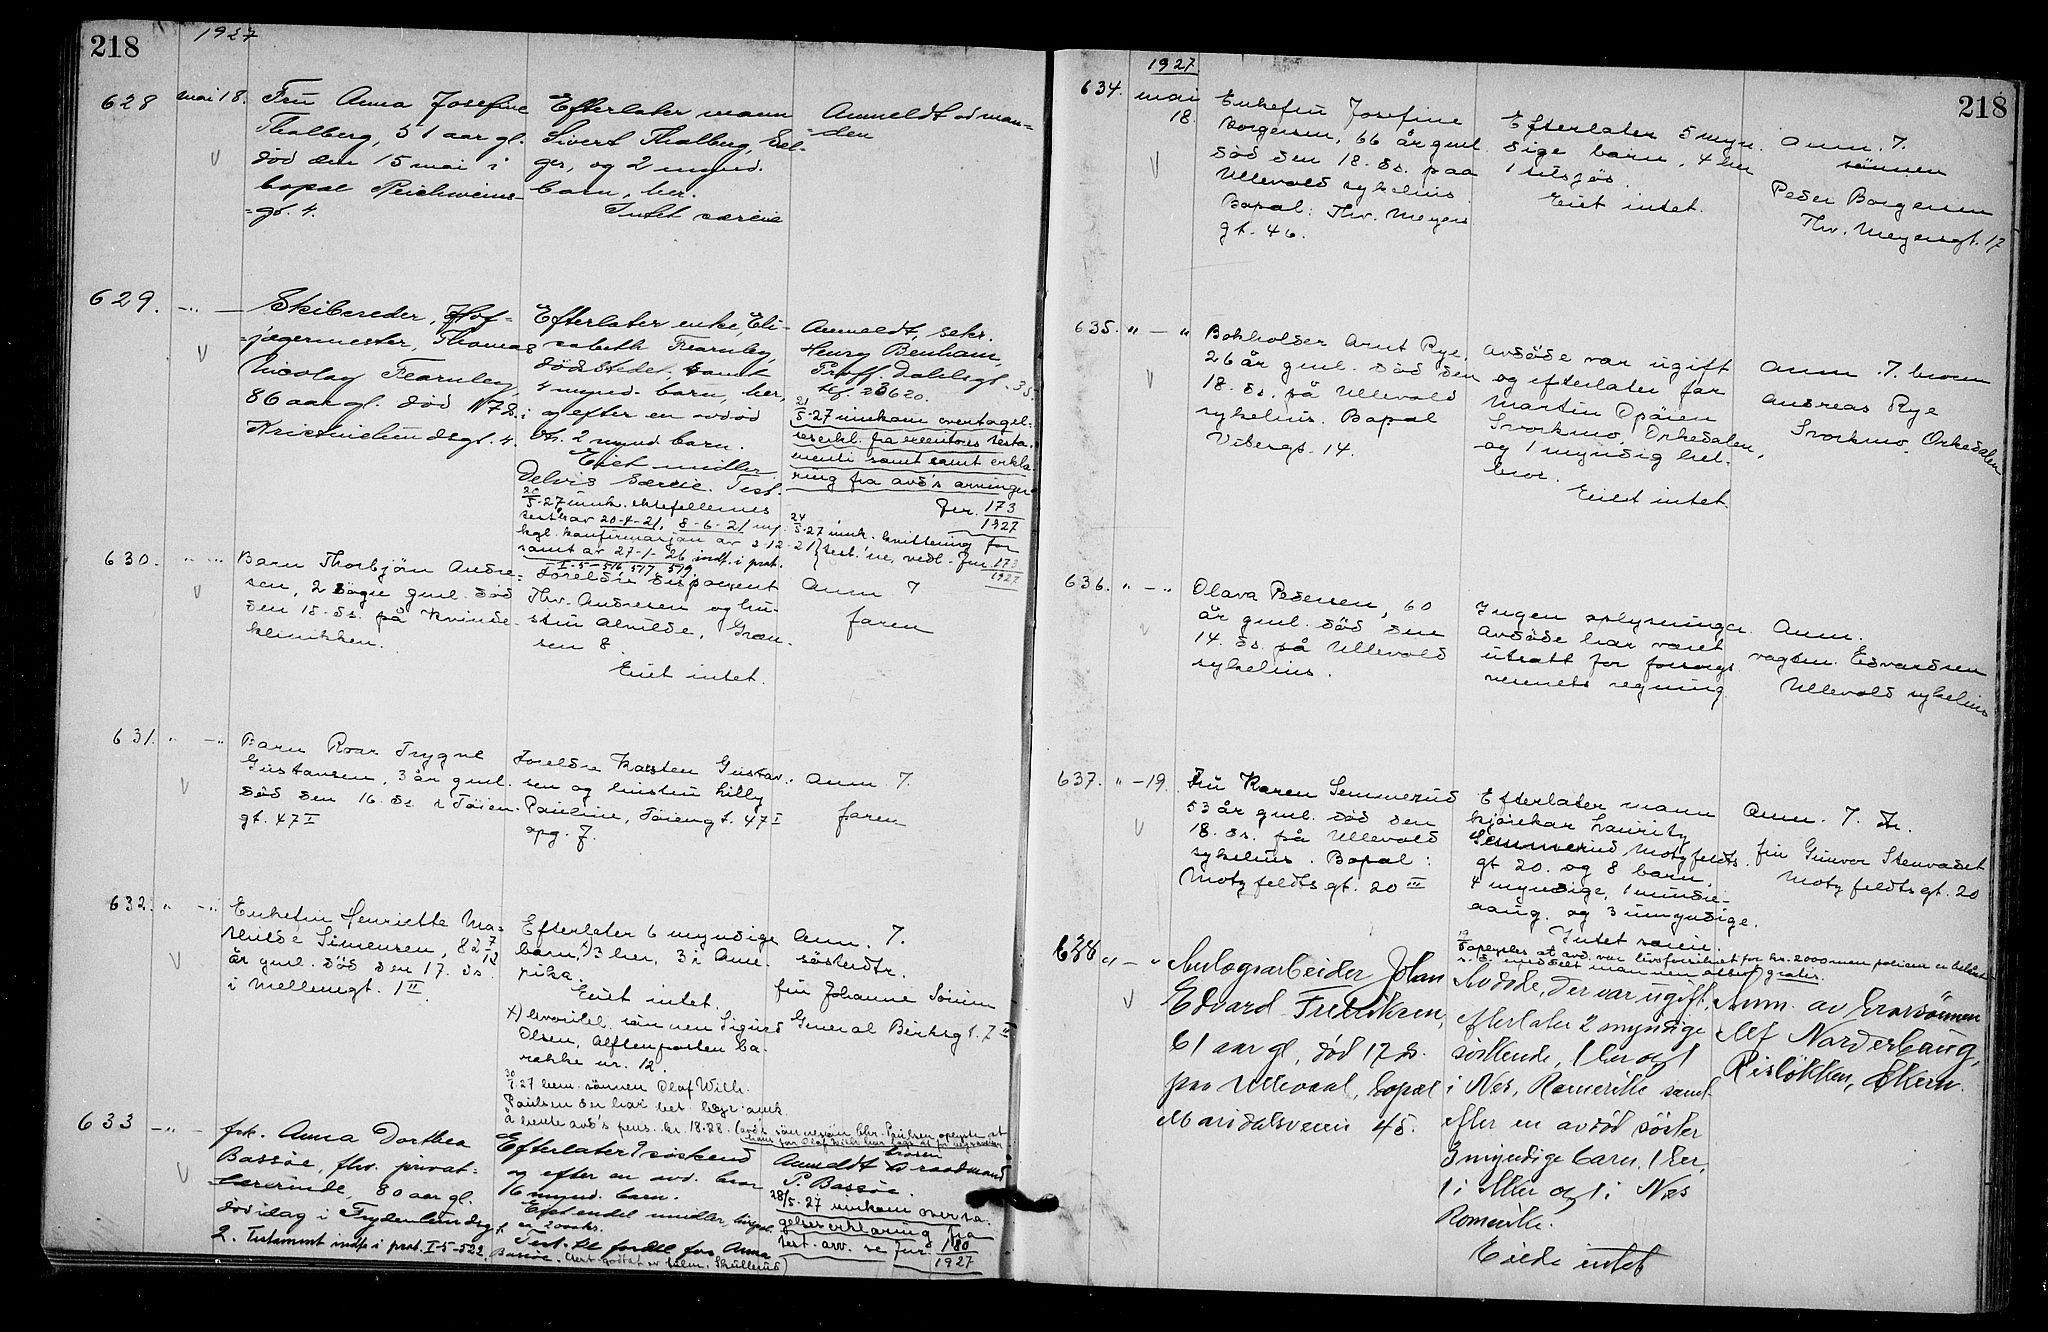 218
1927
628
mai 18.
Fru Anna Josefine
Thalberg, 51 aar gl.
död den 15 mai i
bopæl Reichweins-
=gt. 4.
Efterlater mann
Sivert Thalberg, Sel-
ger, og 2 mynd.
barn, her.
Intet særeie
Anmeldt av man-
=den
629.
Skibsreder, Hof-
=jægermester, Thomas
Nicolay Fearnley,
86 aar gl. død 17 ds. i
Kristinelundsgt. 4.
Efterlater enke, Eli-
sabeth Fearnley,
dødsstedet, samt
4 mynd. barn, her,
og efter en avdød
2 mynd. barn.
Eiet midler
Delvis særeie. Test.
20/5-27 innk. ektefellenes
test. av 20-4-21, 8-6-21 m/
kgl. konfirmasjon av 2-12-21
samt av 27-1-26 indt. i prot.
I-5-576, 577, 579.
Anmeldt, sekr.
Henry Benham,
Proff. Dahlsgt. 35
tlf. 23620.
21/5-27 innkom overtagel-
seserkl. fra executores testa-
menti samt samt erklæ-
ring fra avd's arvinger
Jnr. 173/1927
24/5-27 innk. kvittering for
test.'ne, vedl. Jnr. 173/1927
630.
Barn Thorbjörn Andre-
sen, 2 dögn gml. död
den 18. ds. på Kvinde-
klinikken.
Foreldre disponent
Thv. Andresen og hu-
stru Alvilde, Græn-
sen 8.
Eiet intet.
Anm. 7
faren
631.
Barn Roar Trygve
Gustavsen, 3 år gml.
död den 16. ds. i Töien-
gt. 47 I
Foreldre Karsten Gustav-
sen og hustru Lilly
Pauline, Töiengt. 47 I
opg. 7.
Anm. 7.
faren
632.
Enkefru Henriette Ma-
thilde Simensen, 82 7/12
år gml. död den 17. ds.
i Mellemgt. 1 II.
Efterlater 6 myndige
barn, x) 3 her, 3 i Ame-
rika.
Eiet intet.
x) hvoribl. sönnen Sigurd
Olsen, Aftenposten ba-
rakke nr. 12.
Paulsen den har bet. begr. ank.
å hente avd's pens. kr. 18.28.
Anm. 7.
søsterdtr.
fru Johanne
General Birchsgt. 7 II
633
frk. Anna Dorthea
Bassöe, fhv. privat-
lærerinde, 80 aar gl.
död idag i Frydenlundsgt.
2. Testament indf. i prot. I-5-522.
Efterlater 7 söskend
og efter en avd. bror
16 mynd. barn.
Eiet endel midler,
Test. til fordel for Anna
Bassöe.
Anmeldt av broren raadmand
P. Bassöe.
28/5-27 innkom overta-
gelseserklæring fra
test. arv. se Jnr 180/1927
218
1927
634.
mai
18.
Enkefru Josefine
Borgersen, 66 år gml.
död den 18. ds. paa
Ullevold sykehus.
Bopæl: Thv. Meyers
gt. 46.
Efterlater 5 myn-
dige barn, 4 her
1 tilsjös.
Eiet intet.
Anm. 7.
sönnen
Peder Borgersen
Thv. Meyersgt. 17
635.
Bokholder Arnt Rye,
26 år gml. död den
18. ds. på Ullevold
sykehus. Bopæl
Vibesgt. 14.
Avdöde var ugift
og efterlater far
Martin Opöien
Svorkmo, Orkedalen,
og 1 myndig hel-
bror.
Eiet intet.
Anm. 7. broren
Andreas Rye
Svorkmo. Orkedalen
636.
Olava Pedersen, 60
år gml. död den
14. ds. på Ullevold
sykehus.
Ingen oplysninger.
Avdöde har været
utsatt for forsorgs-
vesenets regning
Anm.
vagtm. Edvardsen
Ullevold sykehus
637.
19.
Fru Karen Semmerud
53 år gml. död den
18. ds. på Ullevold
sykehus. Bopæl:
Motzfeldts gt. 20 III
Efterlater mann
kjörekar Lauritz
Semmerud, Motzfeldts
gt 20. og 8 barn,
4 myndige, 1 mindre-
aarig. og 3 umyndige.
Intet særeie.
Anm. 7. dtr.
fru Gunvor Stenvadet
Motzfeldts gt. 20
638
Anlægsarbeider Johan
Edvard Fredriksen,
61 aar gl, död 17 ds.
paa Ullevaal, bopæl
Maridalsveien 45.
Avdöde, der var ugift,
efterlater 2 myndige
söskende, 1 her og 1
i Nes, Romerike samt
efter en avdöd söster
3 myndige barn, 1 her,
1 i Aker og 1 i Nes
Romerike.
Eiede intet
Anm. av brorsönnen
Alf Norderhaug,
Risløkken, Økern.